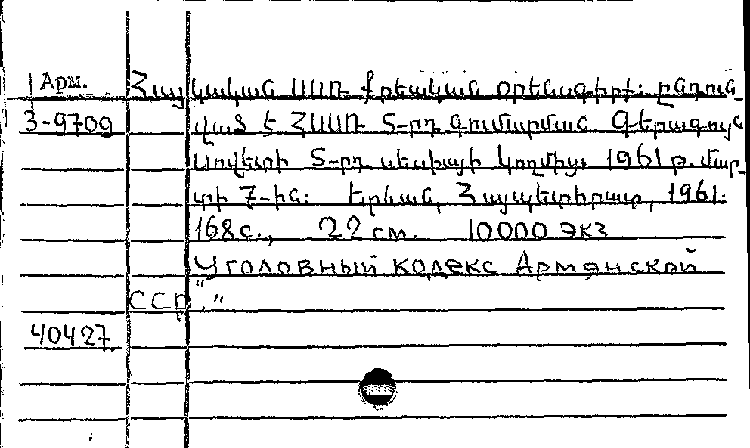 Арм. Հայկական ՍՍՌ քրեական օրենսգիրք: ընդուն-
3-9709 ված է ՀՍՍՌ 5-րդ գումարման Գերագույն
Սովետի 5-րդ սեսիայի կողմից 1961 թ. մար-
տի 7-ին: Երևան, Հայպետհրատ, 1961.
168 с., 22 см. 10000 экз
"Уголовный кодекс Армянской
ССР."
40427